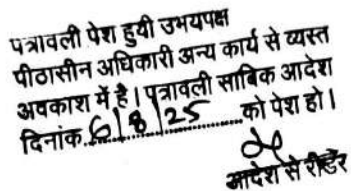 पत्रावली पेश हुयी उभयपक्ष
पीठासीन अधिकारी अन्य कार्य से व्यस्त
अवकाश में है। पत्रावली साबिक आदेश
दिनांक 6/8/25 को पेश हो।
आदेश से रीडर